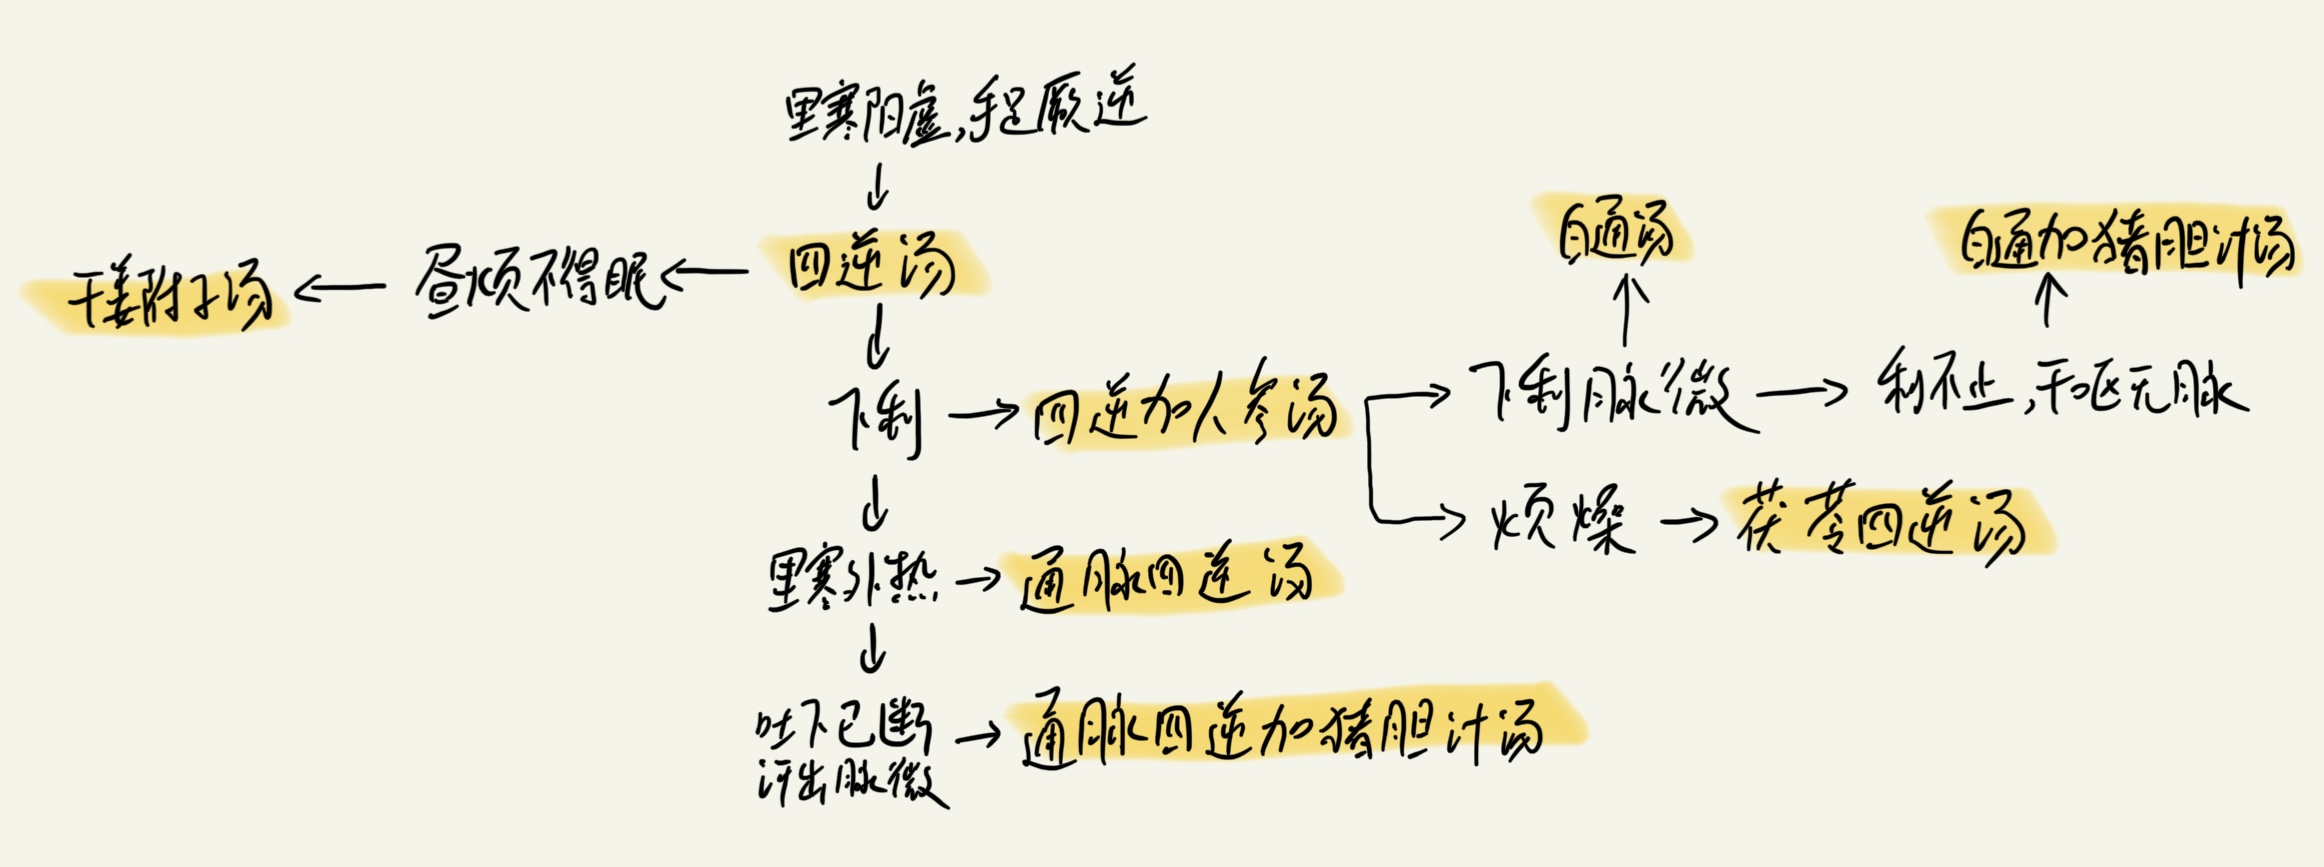 里寒阳虚,手足厥逆
白通汤
白通加猪胆汁汤
干姜附子汤
昼烦不得眠
四逆汤
下利
四逆加人参汤
下利脉微
利不止,干呕无脉
烦燥
茯苓四逆汤
里寒外热
通脉四逆汤
吐下已断
汗出脉微
通脉四逆加猪胆汁汤